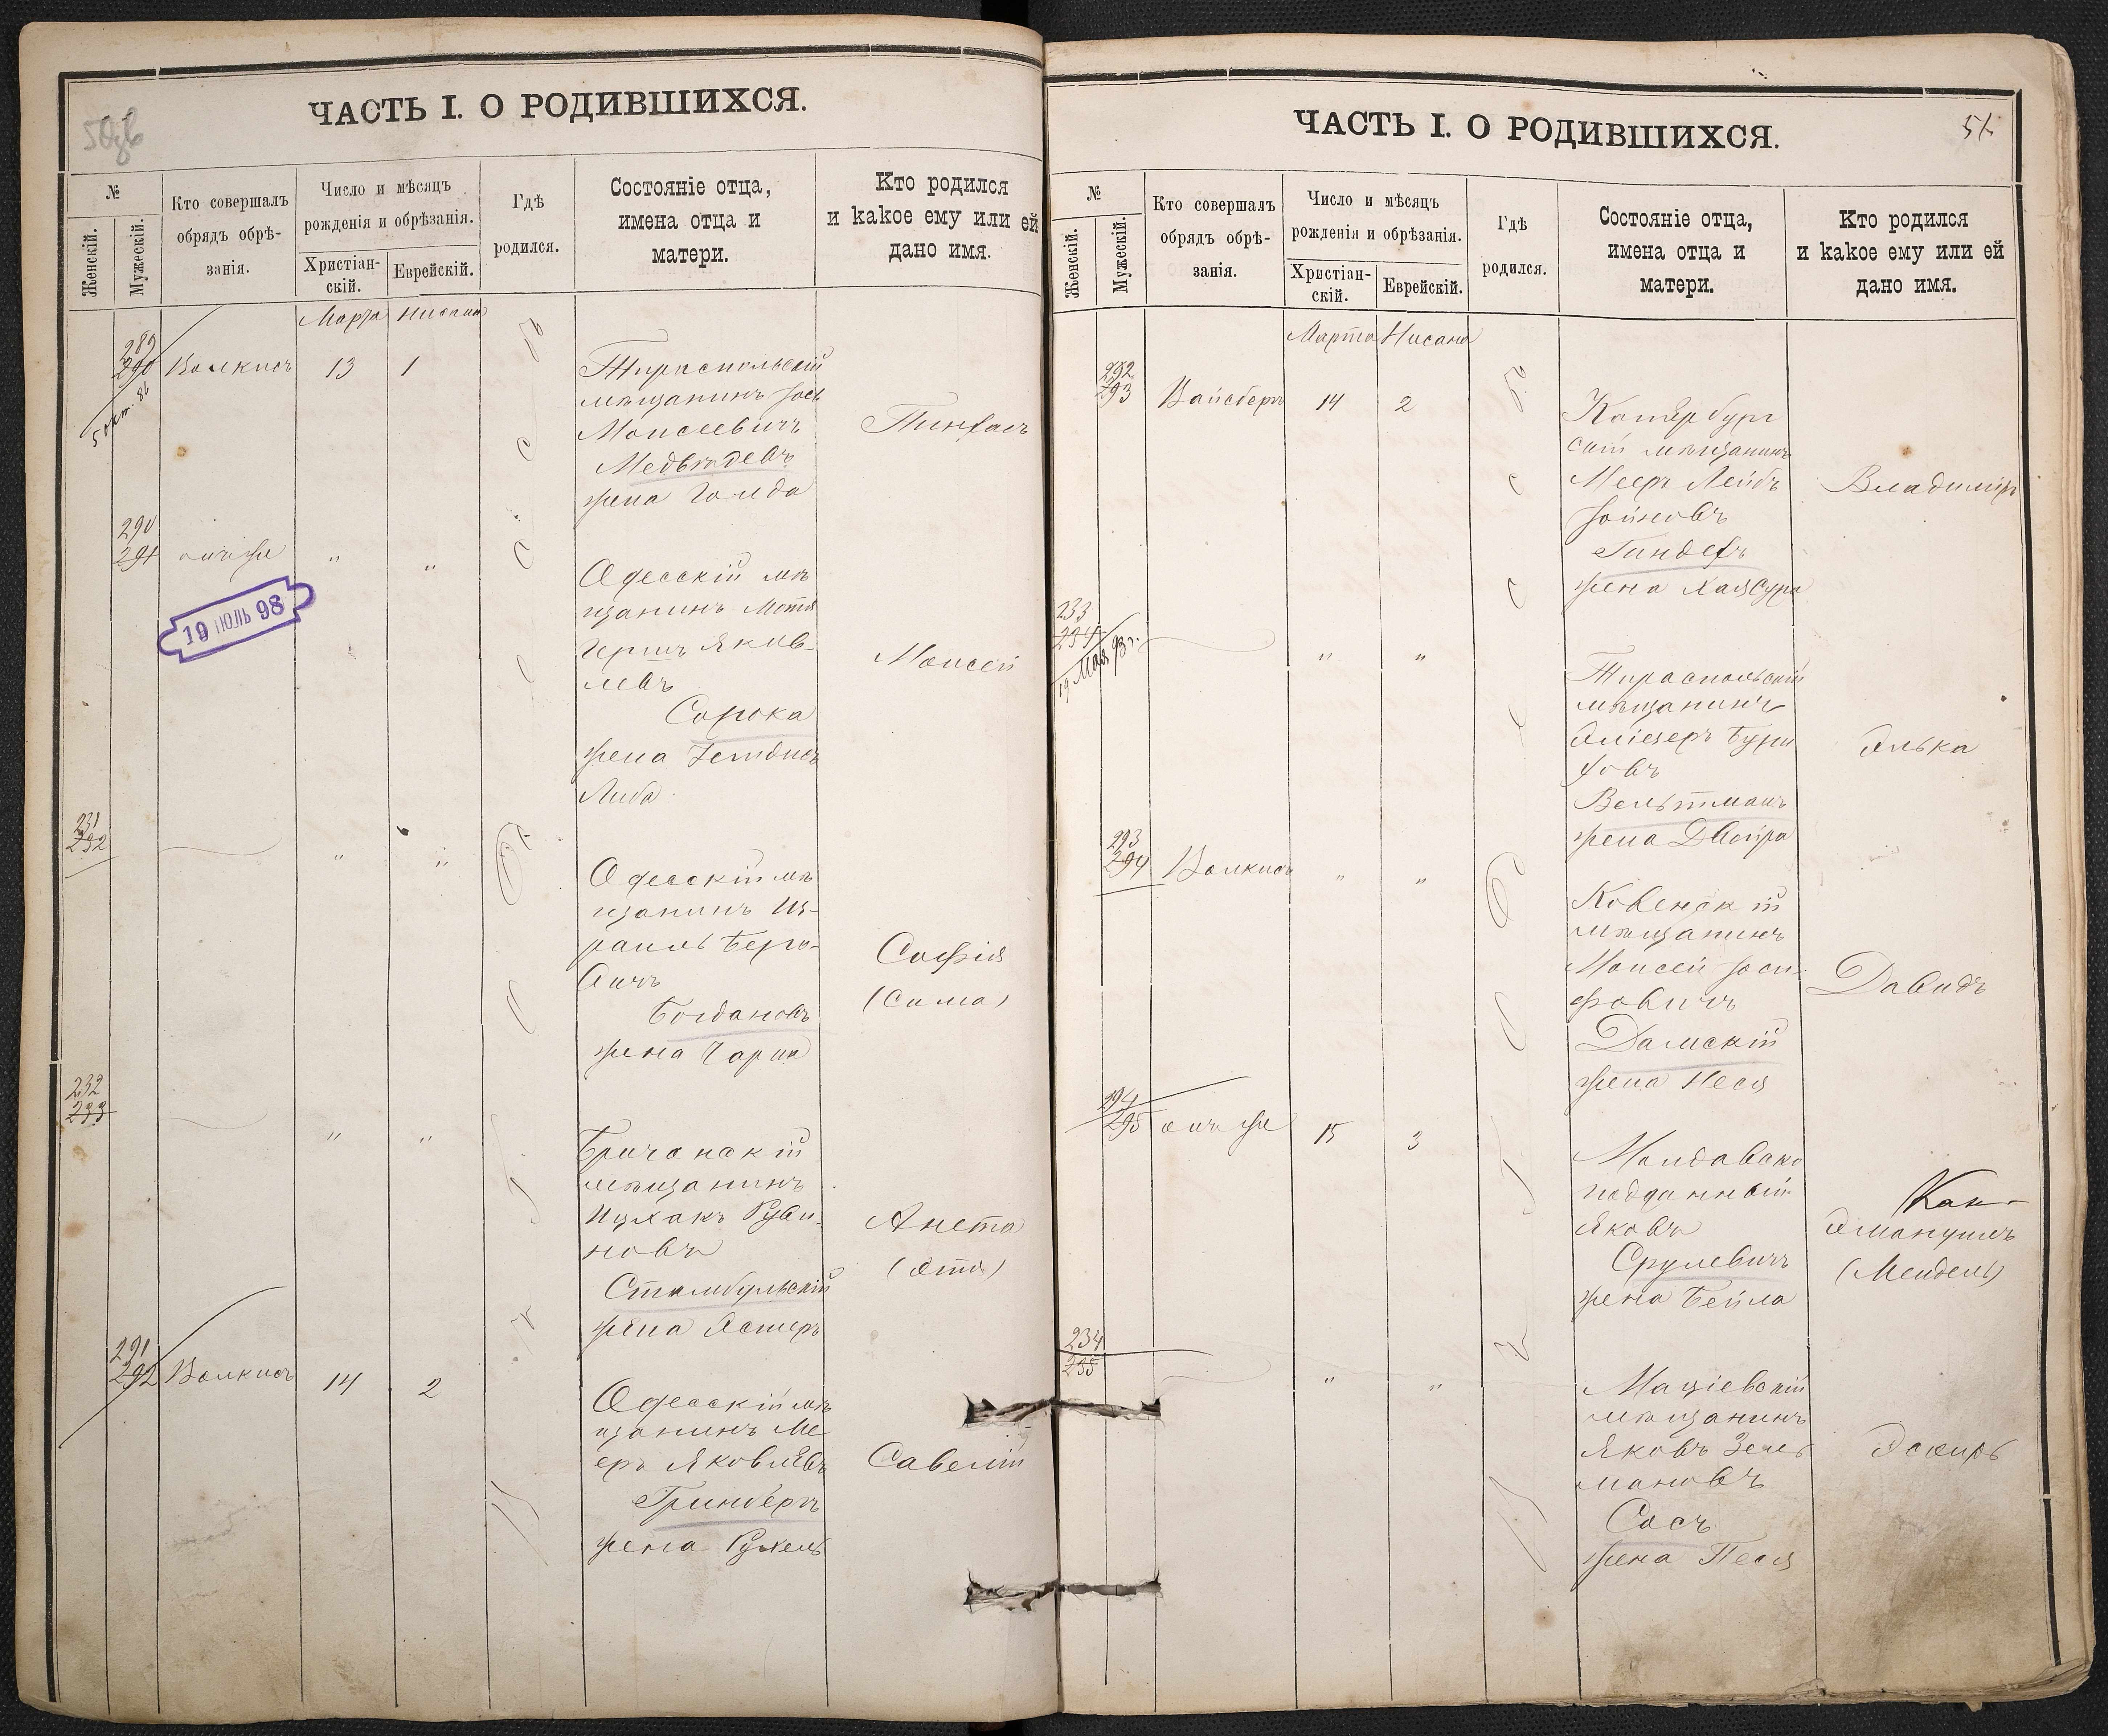 ЧАСТЬ I. О РОДИВШИХСЯ.
№
Женскій.
Мужескій.
Кто совершалъ
обрядъ обрѣ-
занія.
Число и мѣсяцъ
рожденія и обрѣзанія.
Христіан-
скій.
Еврейскій.
Гдѣ
родился.
Состояніе отца,
имена отца и
матери.
Кто родился
и какое ему или ей
дано имя.
Марта Нисана
289
290
5 окт. 86
Волкисъ 13 1
Тираспольскій
мѣщанинъ Іось
Моисеевичъ
Медвѣдевъ
жена Голда
Пинхасъ
290
291
онъ же " "
19 ІЮЛЬ 98
Одесскій мѣ
щанинъ Мотя
Гершъ Яков-
левъ
Сорока
жена
Либа
Моисей
231
232
" "
Одесскій мѣ
щанинъ Из-
раиль Беро-
вичъ
Богдановъ
жена Чарна
Софія
(Сима)
232
233
" "
Бричанскій
мѣщанинъ
Ицхакъ Руви-
новъ
Стамбульскій
жена Эстеръ
Анета
(Этя)
291
292
Волкисъ 14 2
Одесскій мѣ
щанинъ Ме
еръ Яковлевъ
Гринбергъ
жена Рухель
Савелій
ЧАСТЬ I. О РОДИВШИХСЯ.
51
№
Женскій.
Мужескій.
Кто совершалъ
обрядъ обрѣ-
занія.
Число и мѣсяцъ
рожденія и обрѣзанія.
Христіан-
скій.
Еврейскій.
Гдѣ
родился.
Состояніе отца,
имена отца и
матери.
Кто родился
и какое ему или ей
дано имя.
Марта Нисана
292
293
Вайсбергъ 14 2
Катербург
скій мѣщанинъ
Мееръ Лейбъ
Іойновъ
жена Хая Сура
Владиміръ
233
234
19 Мая 93 г.
" "
Тираспольскій
мѣщанинъ
Вельтманъ
жена Двойра
Элька
293
294
Волкисъ " "
Ковенскій
мѣщанинъ
Моисей Іоси-
фовичъ
Дамскій
жена Неся
Давидъ
294
295
онъ же 15 3
Молдавско
подданный
Яковъ
Срулевичъ
жена Бейла
Эмануилъ
(Мендель)
234
235
" "
Мадіевскій
мѣщанинъ
Яковъ Зель
мановъ
Сосъ
жена Песя
Эсѳирь